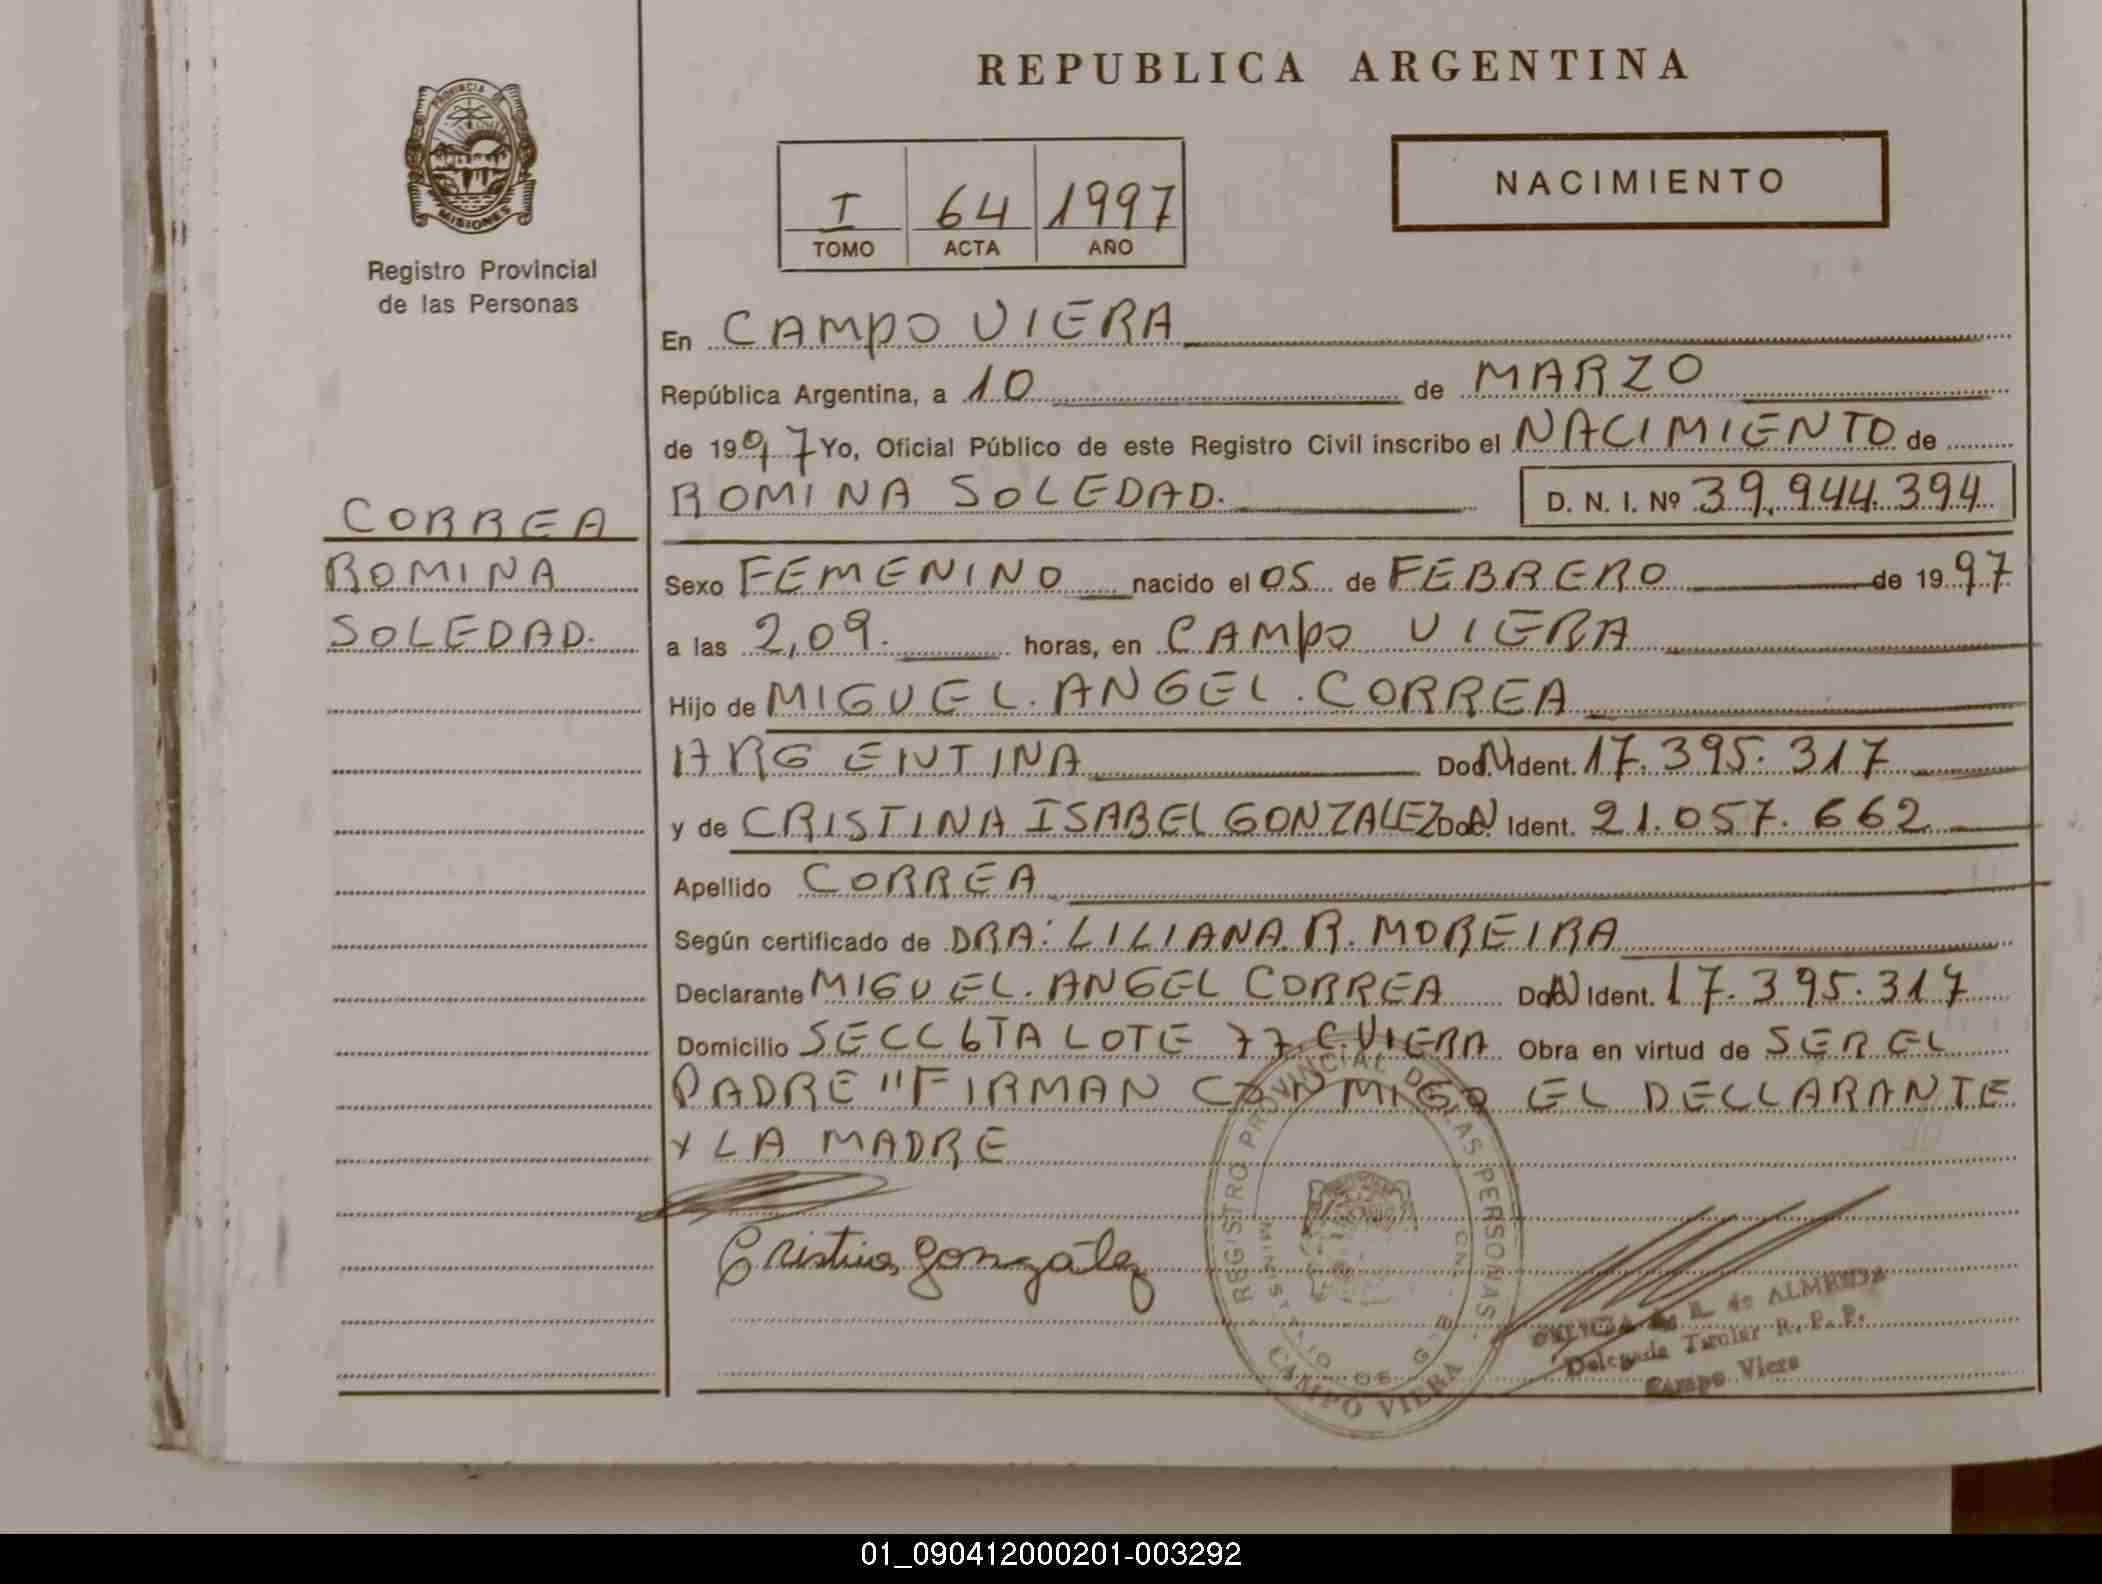 REPUBLICA ARGENTINA
PROVINCIA DE
MISIONES
Registro Provincial
de las Personas
I 64 1997
TOMO ACTA AÑO
NACIMIENTO
En CAMPO VIERA
República Argentina, a 10 de MARZO
de 1997 Yo, Oficial Público de este Registro Civil inscribo el NACIMIENTO de
ROMINA SOLEDAD. D. N. I. Nº 39.944.394
CORREA
ROMINA
SOLEDAD.
Sexo FEMENINO nacido el 05 de FEBRERO de 1997
a las 2,09. horas, en CAMPO VIERA
Hijo de MIGUEL. ANGEL. CORREA
ARGENTINA Ident. 17.395.317
y de CRISTINA ISABEL GONZALEZ Ident. 21.057.662
Apellido CORREA
Según certificado de DRA: LILIANA R. MOREIRA
Declarante MIGUEL. ANGEL CORREA Ident. 17.395.317
Domicilio SECC 6TA LOTE 77 C. VIERA Obra en virtud de SER EL
PADRE "FIRMAN CONMIGO EL DECLARANTE
Y LA MADRE
Cristina González
REGISTRO PROVINCIAL DE LAS PERSONAS
CAMPO VIERA
de ALMEIDA
Delegada Titular R. P. P.
Campo Viera
01_090412000201-003292